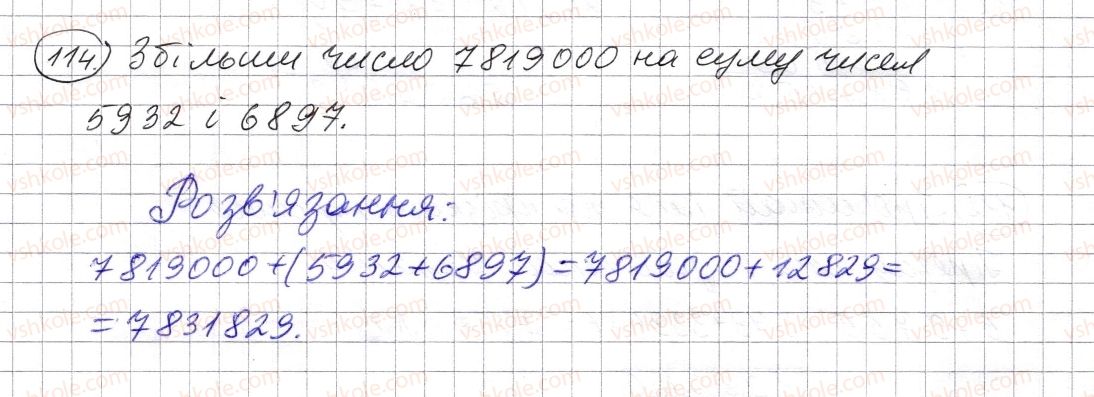 114.) Збільши число 7819000 на суму чисел
5932 і 6897.
Розв'язання:
7819000+(5932+6897)=7819000+12829=
=7831829.